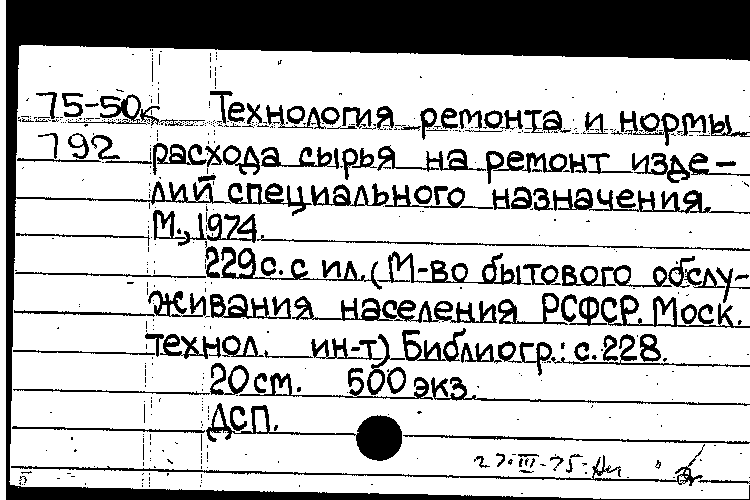 75-50к Технология ремонта и нормы
792 расхода сырья на ремонт изде-
лий специального назначения.
М., 1974.
229 с. с ил. (М-во бытового обслу-
живания населения РСФСР. Моск.
технол. ин-т) Библиогр.: с. 228.
20 ст. 500 экз.
ДСП.
27-III-75